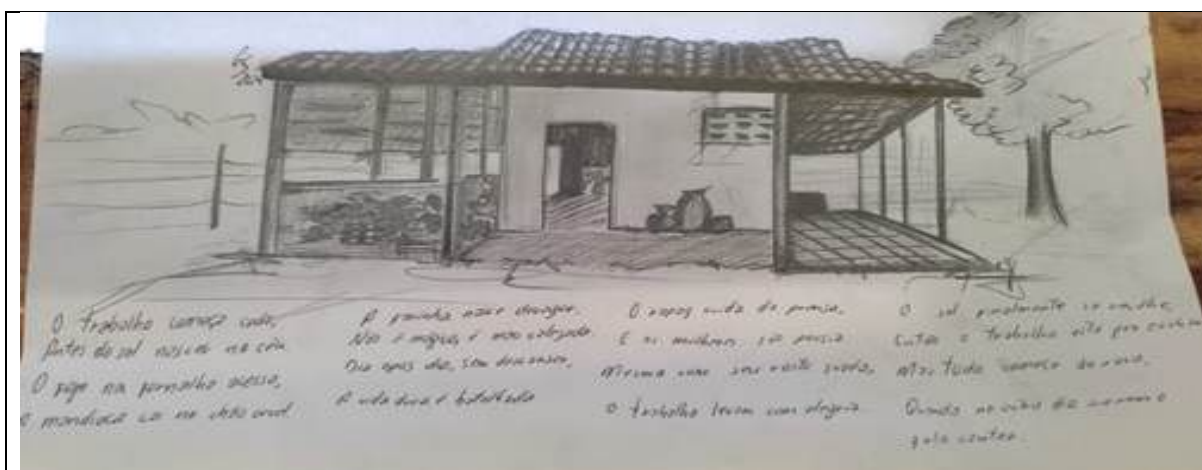 O trabalho começa cedo,
Antes do sol nascer no céu
O fogo na fornalha acesa,
A mandioca cai no chão cruel
A farinha nasce devagar.
Não é mágica, é mão calejada
Dia após dia, sem descansar,
A vida dura é batalhada
O rapaz cuida da prensa,
E as mulheres,
Mesmo com seu rosto suado,
O trabalho levam com alegria
O sol finalmente se recolhe,
Então o trabalho
Mas tudo começa de novo,
Quando no outro dia o
galo cantar.